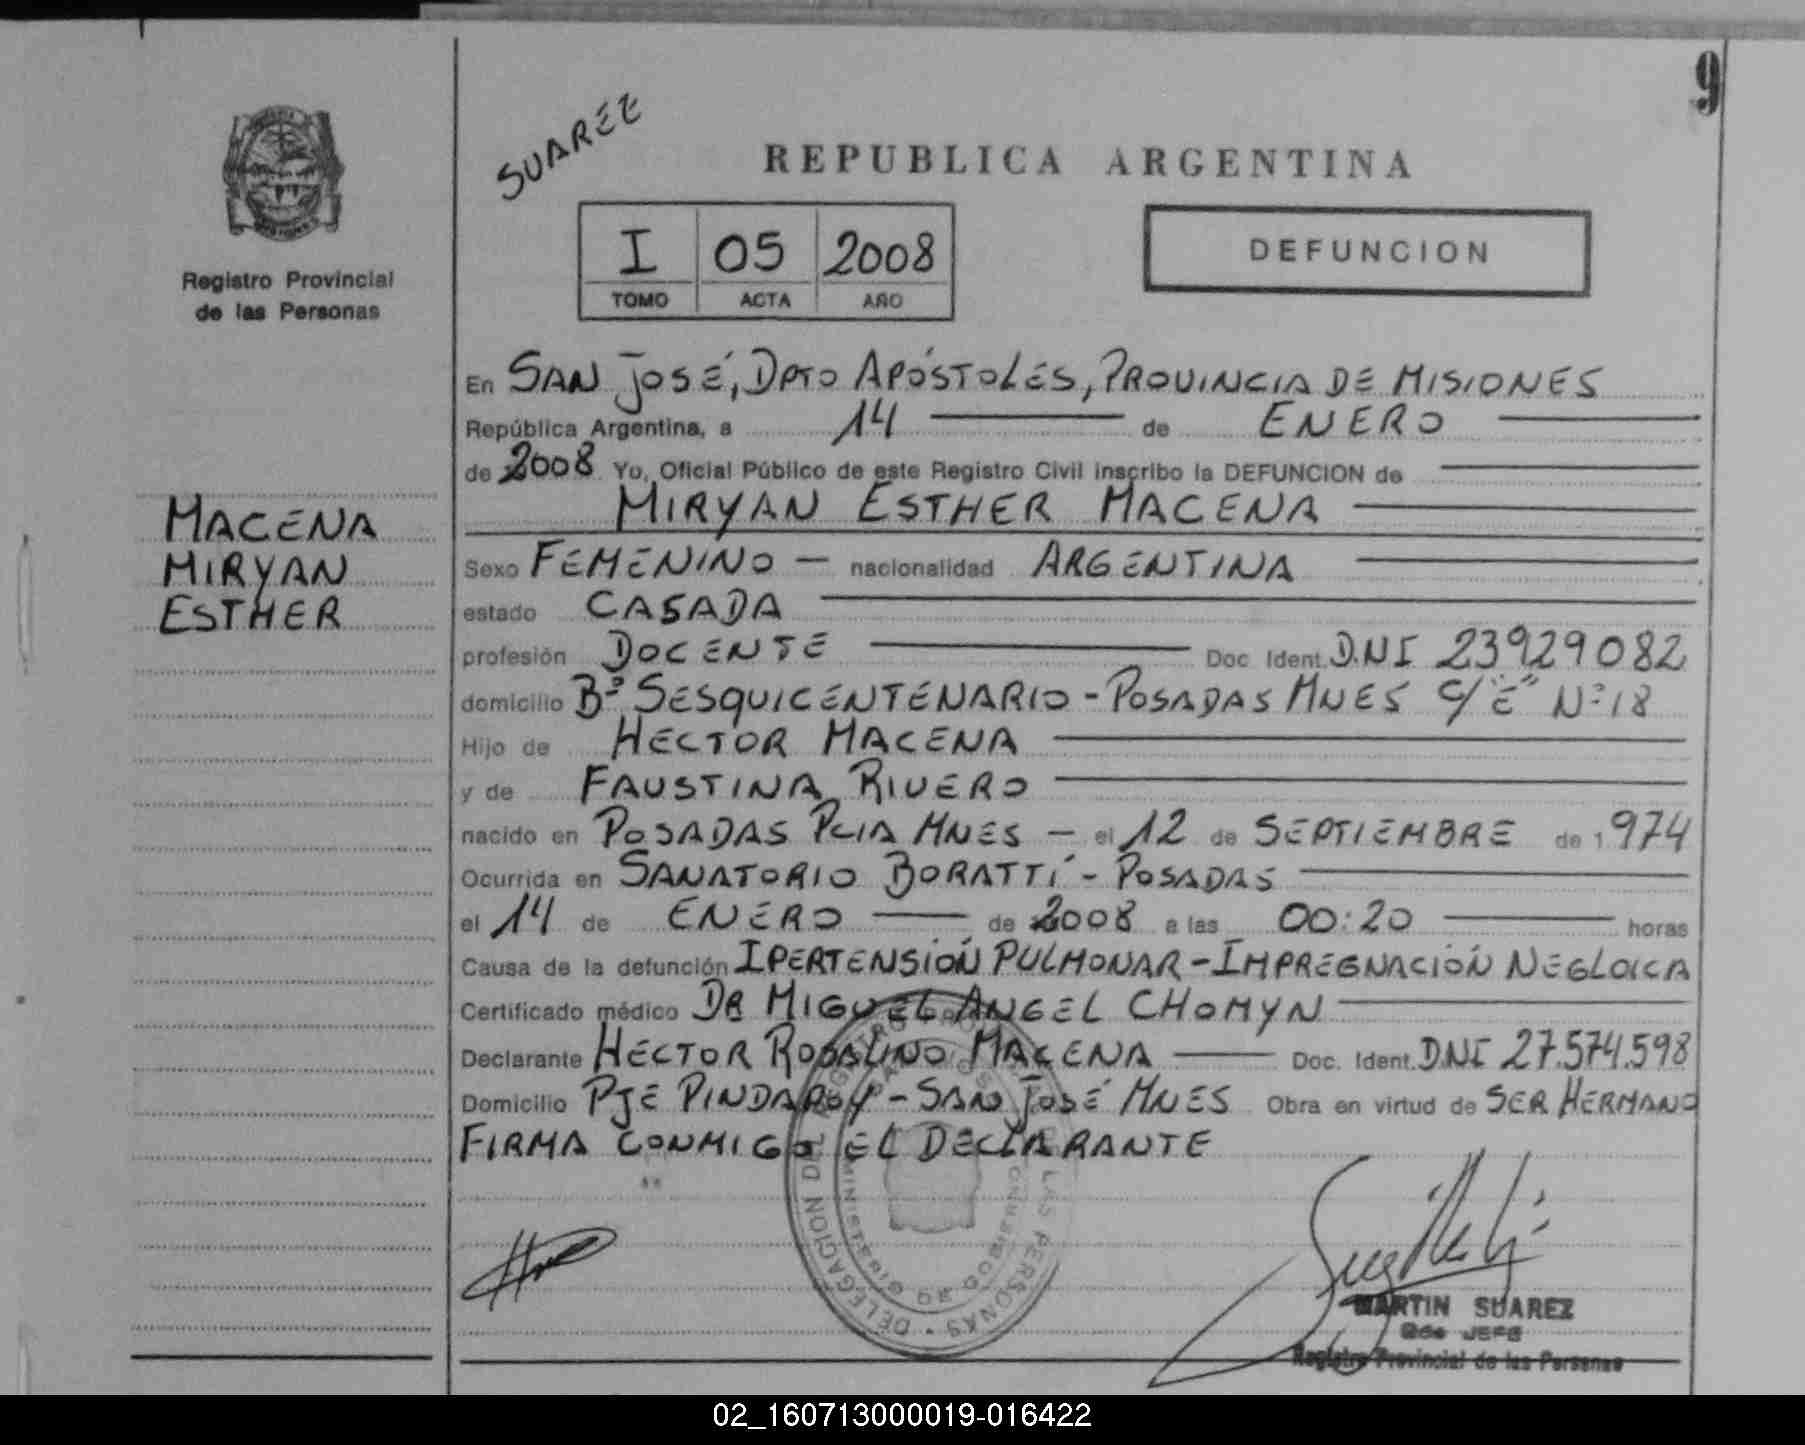 9
SUAREZ
REPUBLICA ARGENTINA
Registro Provincial
de las Personas
I 05 2008
TOMO ACTA AÑO
DEFUNCION
MACENA
MIRYAN
ESTHER
En SAN JOSÉ, DPTO APÓSTOLES, PROVINCIA DE MISIONES
República Argentina, a 14 de ENERO
de 2008 Yo, Oficial Público de este Registro Civil inscribo la DEFUNCION de
MIRYAN ESTHER MACENA
Sexo FEMENINO — nacionalidad ARGENTINA
estado CASADA
profesión DOCENTE Doc Ident. D.N.I 23929082
domicilio Bº SESQUICENTENARIO - POSADAS MNES C/"E" Nº 18
Hijo de HECTOR MACENA
y de FAUSTINA RIVERO
nacido en POSADAS PCIA MNES — el 12 de SEPTIEMBRE de 1974
Ocurrida en SANATORIO BORATTÍ - POSADAS
el 14 de ENERO de 2008 a las 00:20 horas
Causa de la defunción IPERTENSIÓN PULMONAR - IMPREGNACIÓN NEGLOICA
Certificado médico DR MIGUEL ANGEL CHOMYN
Declarante HECTOR ROSALINO MACENA Doc. Ident. DNI 27.574.598
Domicilio PJE PINDAROY - SAN JOSÉ MNES Obra en virtud de SER HERMANO
FIRMA CONMIGO EL DECLARANTE
DELEGACION DEL REGISTRO PROV. DE LAS PERSONAS
MINISTERIO DE GOBIERNO
SAN JOSE
MARTIN SUAREZ
2do JEFE
Registro Provincial de las Personas
02_160713000019-016422